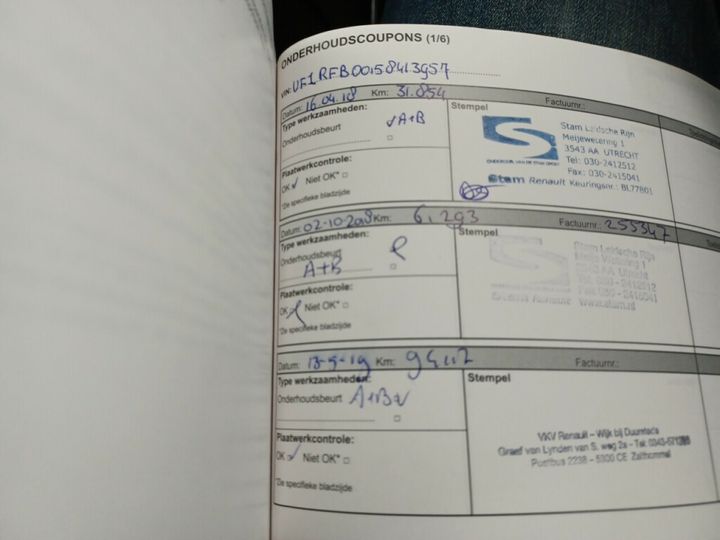 ONDERHOUDSCOUPONS (1/6)
VIN: VF1RFB00158413957
Datum: 16.04.18 Km: 31.854 Factuurnr.:
Type werkzaamheden:
Onderhoudsbeurt A+B
Plaatwerkcontrole:
OK Niet OK*
*De specifieke bladzijde
Stempel
Stam Leidsche Rijn
Meijewetering 1
3543 AA UTRECHT
Tel: 030-2412512
Fax: 030-2415041
ONDERDEEL VAN DE STAM GROEP
Stam Renault Keuringsnr.: BL77801
Datum: 02-10-2018 Km: 61.293 Factuurnr.: 255347
Type werkzaamheden:
Onderhoudsbeurt
A+B
Plaatwerkcontrole:
OK Niet OK*
*De specifieke bladzijde
Stempel
Stam Leidsche Rijn
Meije Wetering 1
3543 AA Utrecht
Tel. 030 - 2412512
Fax 030 - 2415041
Stam Renault www.stam.nl
Datum: 13-5-19 Km: Factuurnr.:
Type werkzaamheden:
Onderhoudsbeurt A+B
Plaatwerkcontrole:
OK Niet OK*
*De specifieke bladzijde
Stempel
VKV Renault – Wijk bij Duurstede
Graaf van Lynden van S. weg 2a - Tel:
Postbus 2238 – 5300 CE Zaltbommel